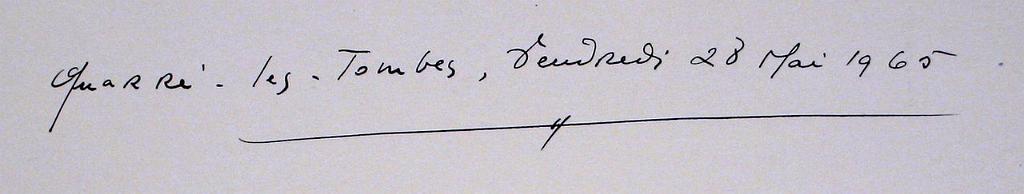 Quarré-les-Tombes, Vendredi 28 Mai 1965